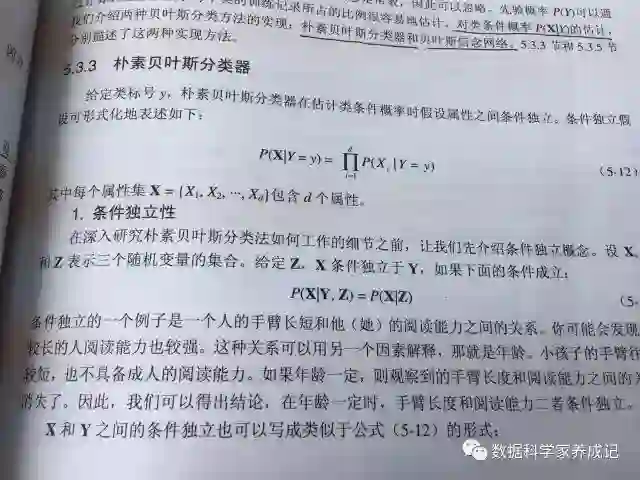 训练记录所占的比例很容易地估计。对类条件概率P(X|Y)的估计,
我们介绍两种贝叶斯分类方法的实现:朴素贝叶斯分类器和贝叶斯信念网络。5.3.3 节和 5.3.5 节
分别描述了这两种实现方法。
5.3.3 朴素贝叶斯分类器
给定类标号 y,朴素贝叶斯分类器在估计类条件概率时假设属性之间条件独立。条件独立假
设可形式化地表述如下:
P(X|Y = y) = ∏_{i=1}^{d} P(X_i | Y = y) (5-12)
其中每个属性集 X = {X1, X2, …, Xd}包含 d 个属性。
1. 条件独立性
在深入研究朴素贝叶斯分类法如何工作的细节之前,让我们先介绍条件独立概念。设 X、
和 Z 表示三个随机变量的集合。给定 Z,X 条件独立于 Y,如果下面的条件成立:
P(X|Y, Z) = P(X|Z) (5-
条件独立的一个例子是一个人的手臂长短和他(她)的阅读能力之间的关系。你可能会发现
较长的人阅读能力也较强。这种关系可以用另一个因素解释,那就是年龄。小孩子的手臂往
较短,也不具备成人的阅读能力。如果年龄一定,则观察到的手臂长度和阅读能力之间的
消失了。因此,我们可以得出结论,在年龄一定时,手臂长度和阅读能力二者条件独立。
X 和 Y 之间的条件独立也可以写成类似于公式 (5-12) 的形式:
数据科学家养成记